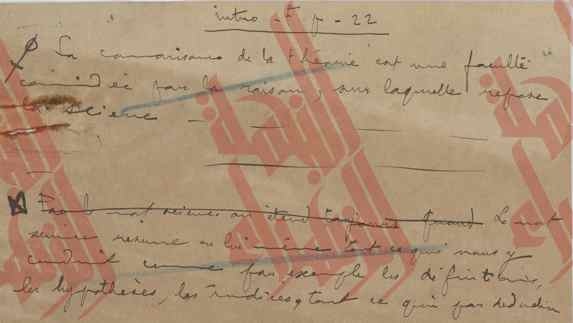 intro - F p - 22
La connaissance de la théorie est une faculté
considérée par la raison, sur laquelle repose
la science
Le mot
science résume en lui même tout ce qui nous y
conduit comme par exemple les définitions,
les hypothèses, les indices, tout ce qui par déduction